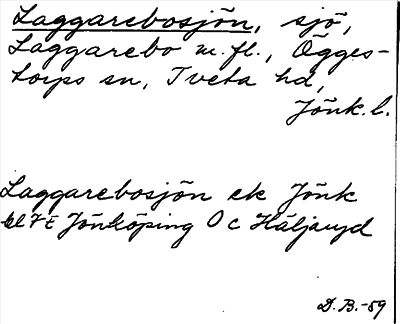 Laggarebosjön, sjö,
Laggarebo m.fl., Ögges-
torps sn, Tveta hd,
Jönk. l.
Laggarebosjön ek Jönk
bl 7 E Jönköping O c Häljaryd
D.B.-59